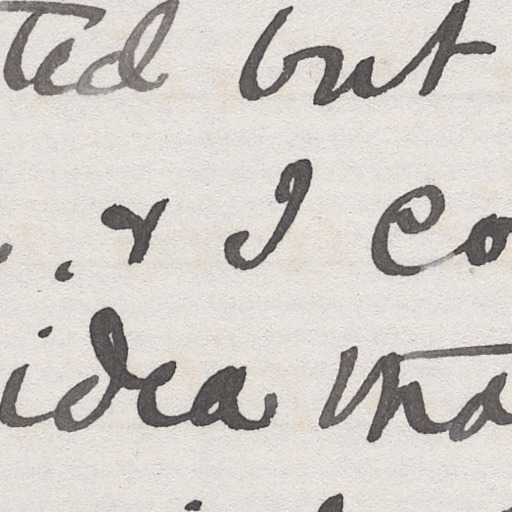 ted but
. & I co
idea tha